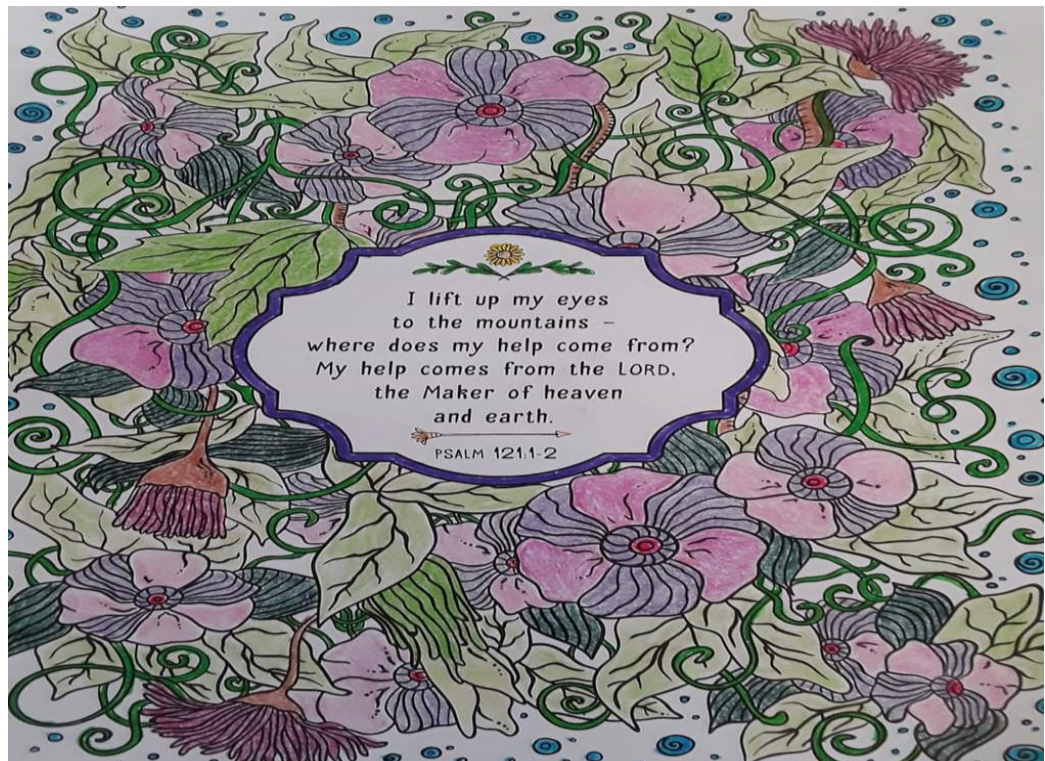 I lift up my eyes
to the mountains –
where does my help come from?
My help comes from the LORD,
the Maker of heaven
and earth.
PSALM 121:1-2